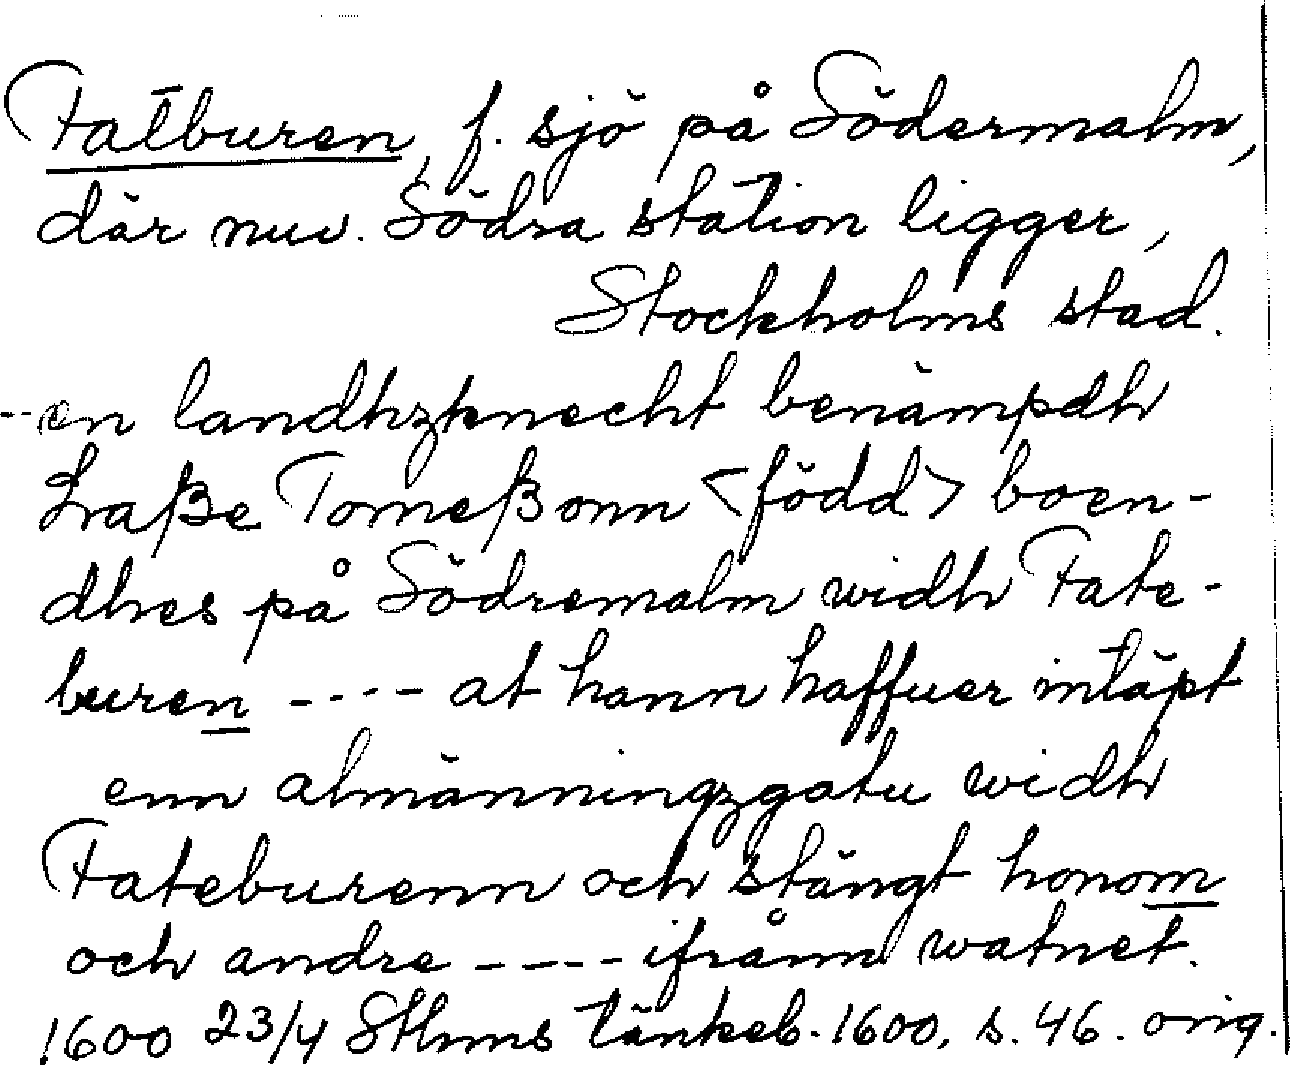 Fatburen, f. sjö på Södermalm,
där nuv. Södra station ligger,
Stockholms stad.
--en landhzknecht benämpdh
Lraße Tomeßonn <född> boen-
dhes på Södremalm widh Fate-
buren ---- at hann haffuer intäpt
enn almänningzgatu widh
Fateburenn och stängt honom
och andre ---- ifrånn watnet.
1600 23/4 Sthms tänkeb. 1600, s. 46. orig.